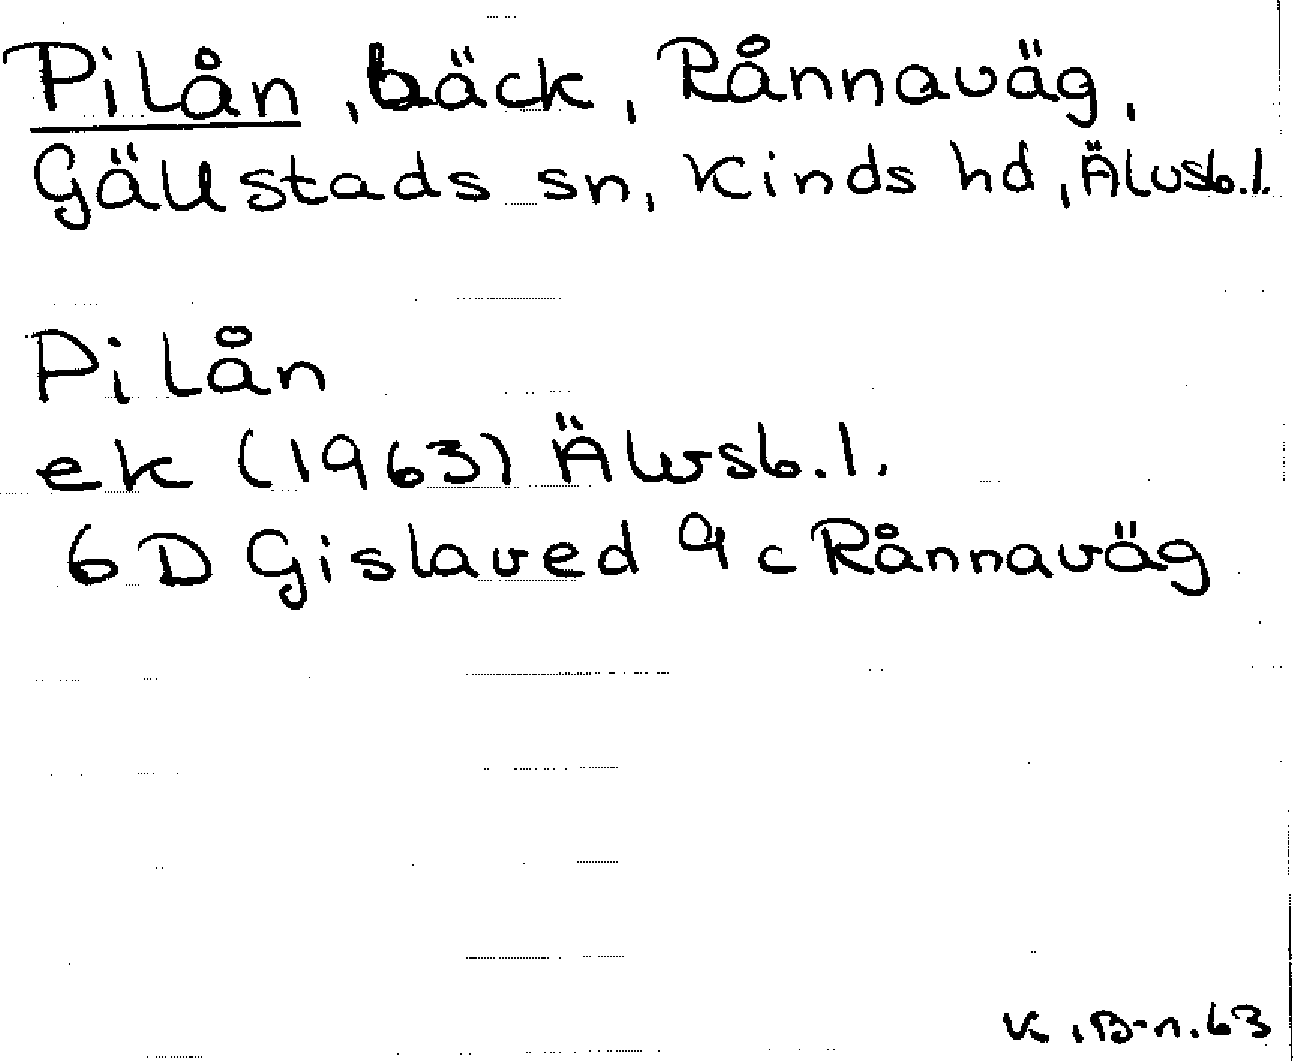 Pilån, bäck, Rånnaväg,
Gällstads sn, Kinds hd, Älvsb.l.
Pilån
ek (1963) Älvsb.l.
6D Gislaved 9c Rånnaväg
K.B-n.63